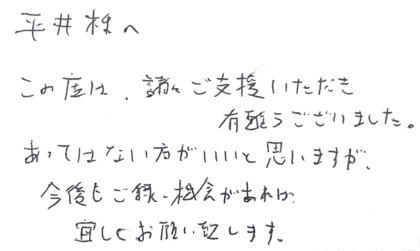 平井様へ
この度は、諸々ご支援いただき
有難うございました。
あってはない方がいいと思いますが、
今後もご縁、機会があれば
宜しくお願い致します。